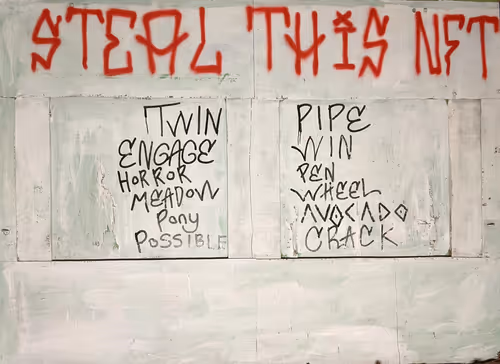 STEAL THIS NFT
TWIN
ENGAGE
HORROR
MEADOW
Pony
POSSIBLE
PIPE
WIN
PEN
WHEEL
AVOCADO
CRACK